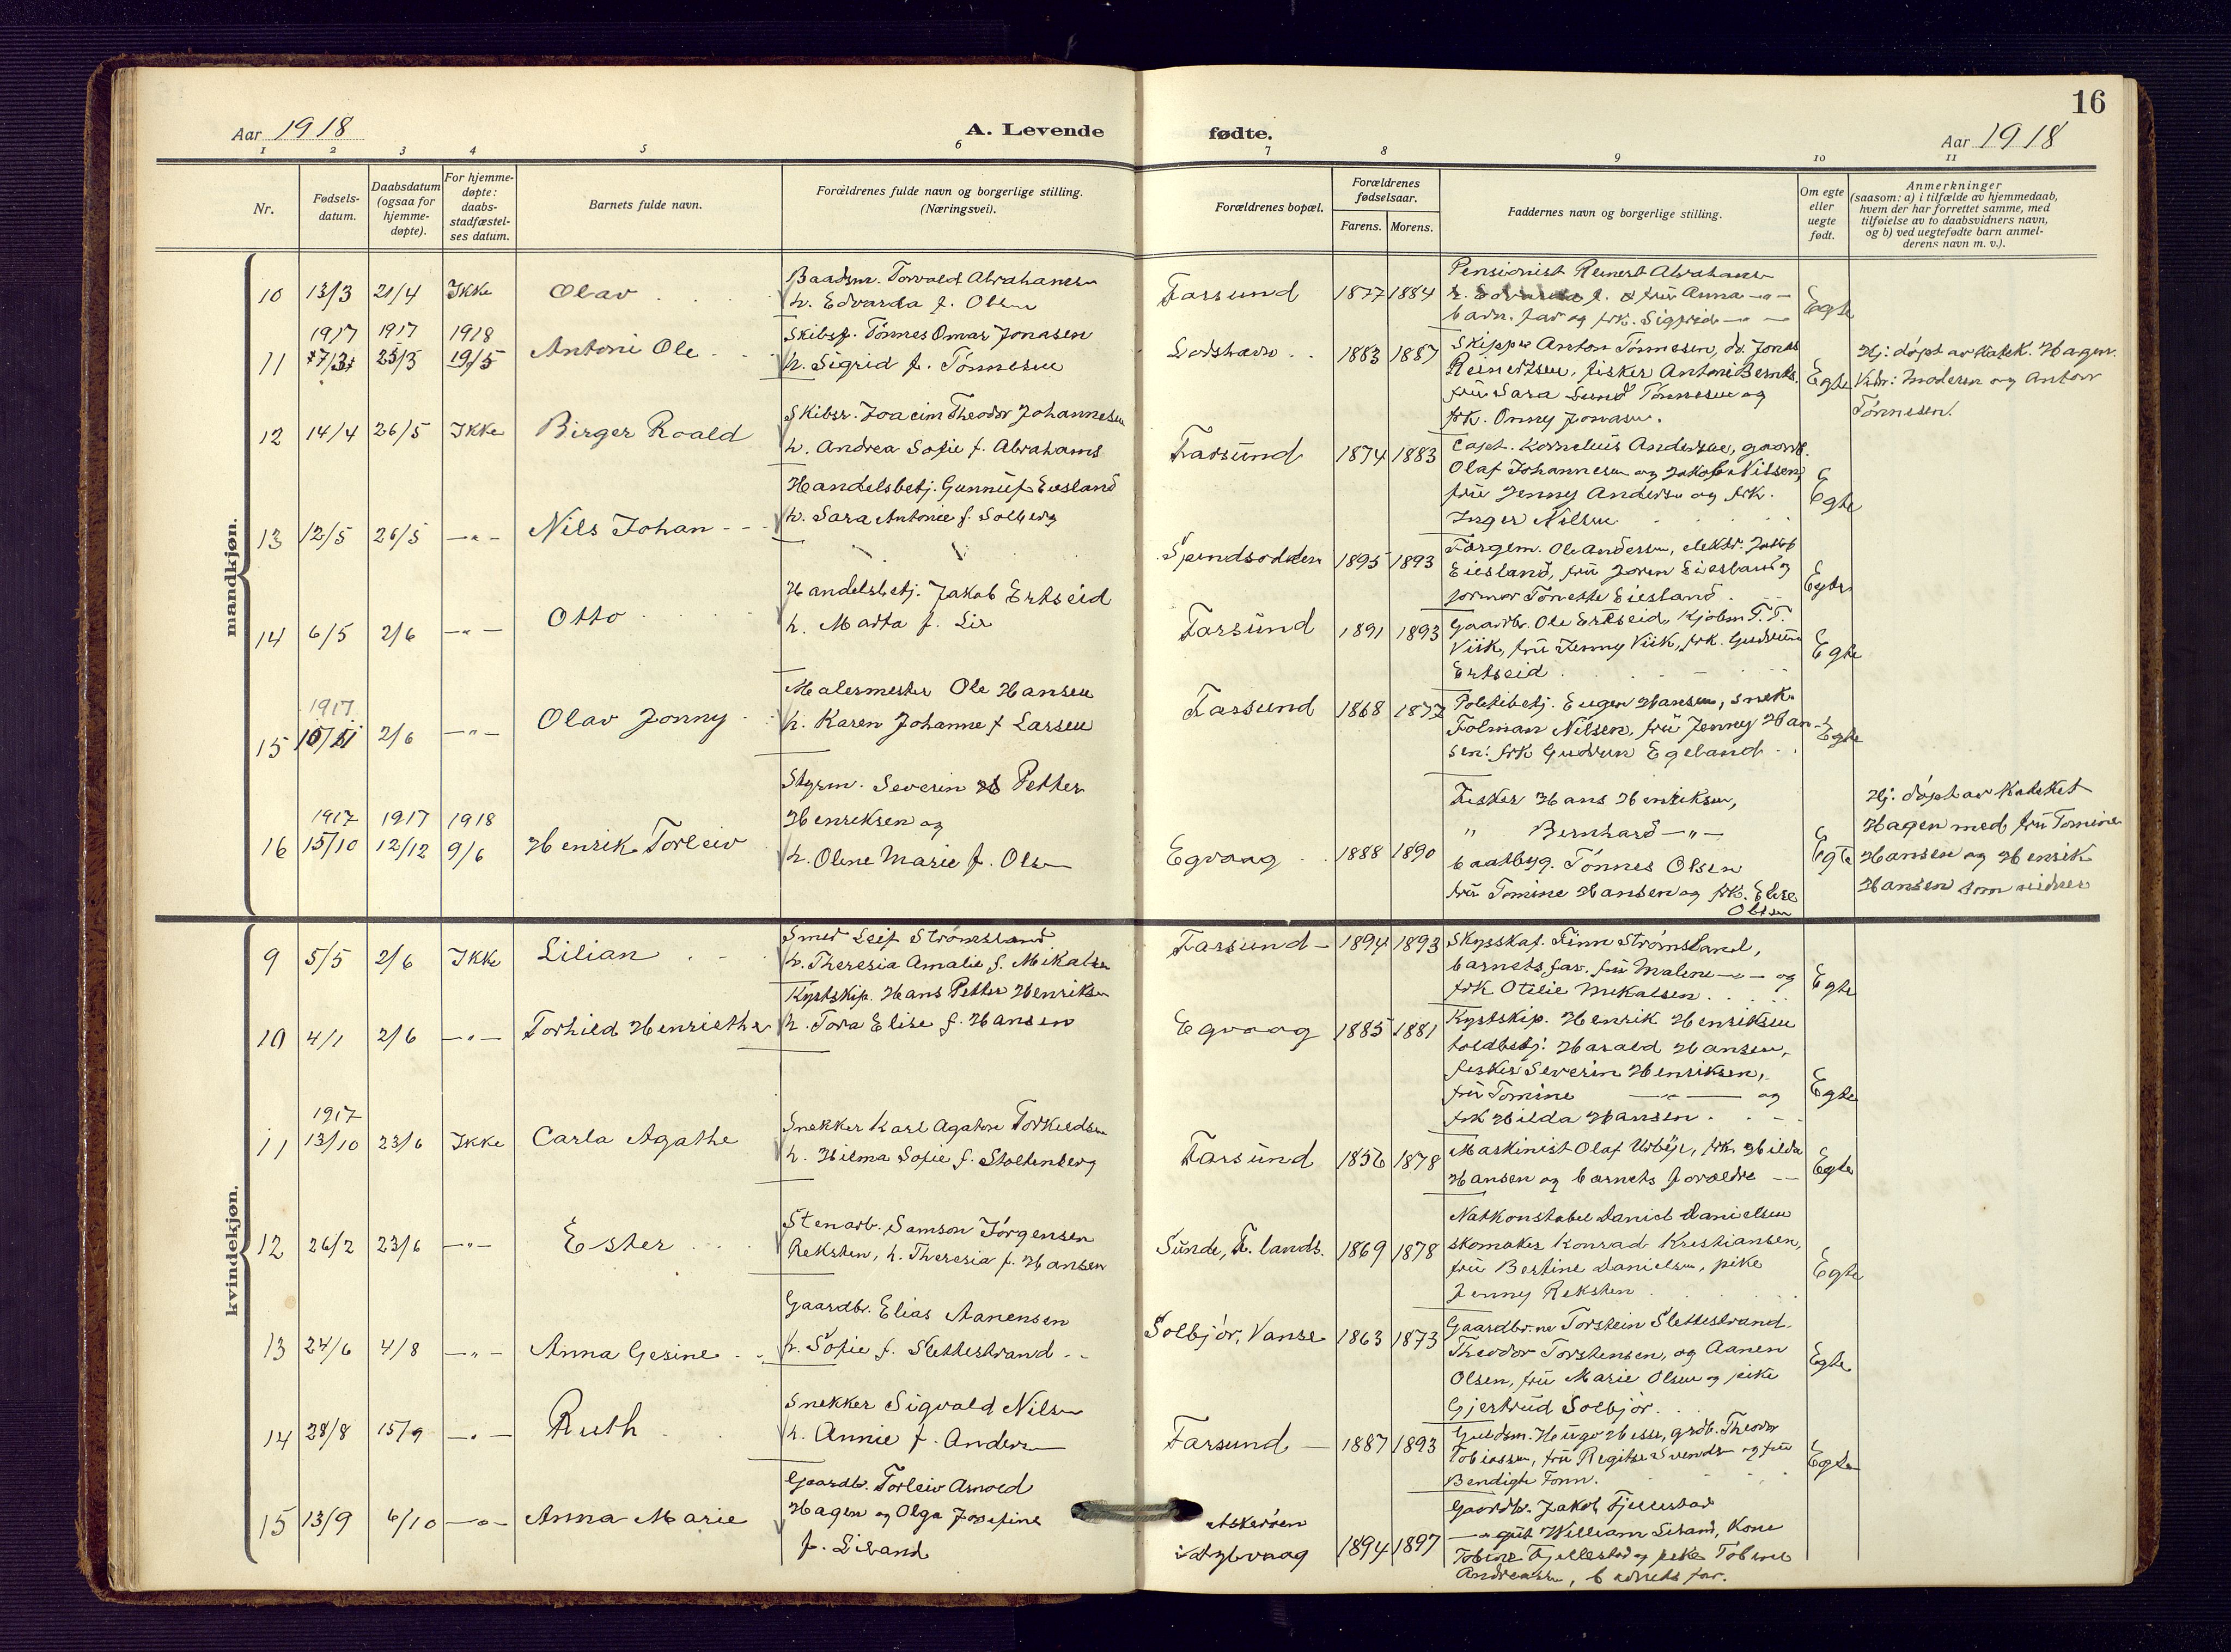 16
Aar 1918
A. Levende fødte.
Aar 1918
1 2 3 4 5 6 7 8 9 10 11
Nr.
Fødsels-
datum.
Daabsdatum
(ogsaa for
hjemme-
døpte).
For hjemme-
døpte:
daabs-
stadfæstel-
ses datum.
Barnets fulde navn.
Forældrenes fulde navn og borgerlige stilling.
(Næringsvei).
Forældrenes bopæl.
Forældrenes
fødselsaar.
Farens. Morens.
Faddernes navn og borgerlige stilling.
Om egte
eller
uegte
født.
Anmerkninger
(saasom: a) i tilfælde av hjemmedaab,
hvem der har forrettet samme, med
tilføielse av to daabsvidners navn,
og b) ved uegtefødte barn anmel-
derens navn m. v.).
mandkjøn.
10 13/3 21/4 Ikke Olav
Baadsm. Torvald Abrahamsen
h. Edvarda f. Olsen
Farsund 1877 1884
Pensionist Reinert Abrahamsen
fru Anna -"-
barn. far og frk. Sigfrid -"-
Egte
1917 1917 1918
11 25/3 19/5 Antoni Ole
Skibsf. Tønnes Omar Jonasen
h. Sigrid f. Tønnesen
Loshavn 1883 1887
Skipper Anton Tønnesen, do. Jonas
Reinertsen, fisker Antoni Bernts.
fru Sara Lund Tønnesen og
frk. Onny Jonasen.
Egte
Hj: døpt av Katek. Hagen.
Vidn: Moderen og Anton
Tønnesen.
12 14/4 26/5 Ikke Birger Roald
Skibsr. Joacim Theodor Johannesen
h. Andrea Sofie f. Abrahams
Farsund 1874 1883
Capt. Kornelius Andersen, gaardb.
Olaf Johannesen og Jakob Nilsen,
fru Jenny Andersen og frk.
Inger Nilsen
Egte
13 12/5 26/5 -"- Nils Johan
Handelsbetj. Gunnuf Eiesland
h. Sara Antonie f. Solberg
Spindsodden 1895 1893
Færgem. Ole Andersen, elektr. Jakob
Eiesland, fru Joren Eiesland og
formor Tonette Eiesland
Egte
14 6/5 2/6 -"- Otto
Handelsbetj. Jakob Ertseid
h. Marta f. Lie
Farsund 1891 1893
Gaardbr. Ole Ertseid, Kjøbm. T. T.
Viik, fru Jenny Viik, frk. Gudrun
Ertseid
Egte
1917
15 10/11 2/6 -"- Olav Jonny
Malermester Ole Hansen
h. Karen Johanne f. Larsen
Farsund 1868 1877
Politibetj. Eugen Hansen, snek.
Folman Nilsen, fru Jenny Han-
sen: frk Gudrun Egeland
Egte
1917 1917 1918
16 15/10 12/12 9/6 Henrik Torleiv
Styrm. Severin Petter
Henriksen og
h. Oline Marie f. Olsen
Egvaag 1888 1890
Fisker Hans Henriksen,
" Bernhard -"-
baatbyg. Tønnes Olsen
fru Tomine Hansen og frk. Elise
Olsen
Egte
Hj: døpt av Kateket
Hagen med fru Tomine
Hansen og Henrik
Hansen som vidner
kvindekjøn.
9 5/5 2/6 Ikke Lilian
Smed Leif Strømsland
h. Theresia Amalie f. Mikalsen
Farsund 1894 1893
Skysskaf. Finn Strømsland,
barnets far. fru Malene -"- og
frk Otilie Mikalsen
Egte
10 4/1 2/6 -"- Torhild Henriethe
Kystskip. Hans Petter Henriksen
h. Tora Elise f. Hansen
Egvaag 1885 1881
Kystskip. Henrik Henriksen
toldbetj: Harald Hansen,
fisker Severin Henriksen,
fru Tomine -"- og
frk Hilda Hansen
Egte
1917
11 13/10 23/6 Ikke Carla Agathe
Snekker Karl Agaton Torkildsen
h. Hilma Sofie f. Stoltenberg
Farsund 1856 1878
Maskinist Olaf Urbye, frk. Hilda
Hansen og barnets forældre
Egte
12 26/2 23/6 -"- Ester
Stenarb. Samson Jørgensen
Reksten, h. Theresia f. Hansen
Sunde, F. lands. 1869 1878
Natkonstabel Daniel Danielsen
skomaker Konrad Kristiansen,
fru Bertine Danielsen, pike
Jenny Reksten
Egte
13 24/6 4/8 -"- Anna Gesine
Gaardbr. Elias Aanensen
h. Sofie f. Slettestrand
Solbjør, Vanse 1863 1873
Gaardbr.ne Torstein Slettestrand
Theodor Torstensen, og Aanen
Olsen, fru Marie Olsen og pike
Gjertrud Solbjør
Egte
14 28/8 15/9 -"- Ruth
Snekker Sigvald Nilsen
h. Annie f. Andersen
Farsund 1887 1893
Guldsm. Hugo Hesse, grdb. Theodor
Tobiassen, fru Regitse Svendsen og fru
Bendigte Tonn.
Egte
15 13/9 6/10 -"- Anna Marie
Gaardbr. Torleiv Arnold
Hagen og Olga Josefine
f. Liland
Askerøen
1894 1897
Gaardbr. Jakob Fjellestad
-"- gut William Liland, Kone
Tobine Fjellestad og pike Tobine
Andreassen, barnets far.